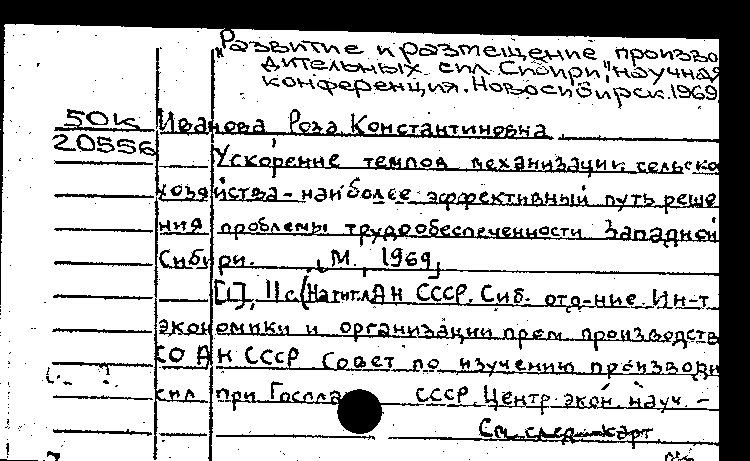 „Развитие и размещение произво
дительных сил Сибири", научная
конференция. Новосибирск. 1969.
50к Иванова Роза Константиновна.
20556 Ускорение темпов механизации сельско
хозяйства - наиболее эффективный путь реше
ния проблемы трудообеспеченности Западной
Сибири. М., 1969,
[1], 11с. (На тит.л. АН СССР. Сиб. отд-ние. Ин-т
экономики и организации пром. производств
СО АН СССР Совет по изучению производи
сил при Госпла СССР. Центр. экон. науч. -
См. след. карт.